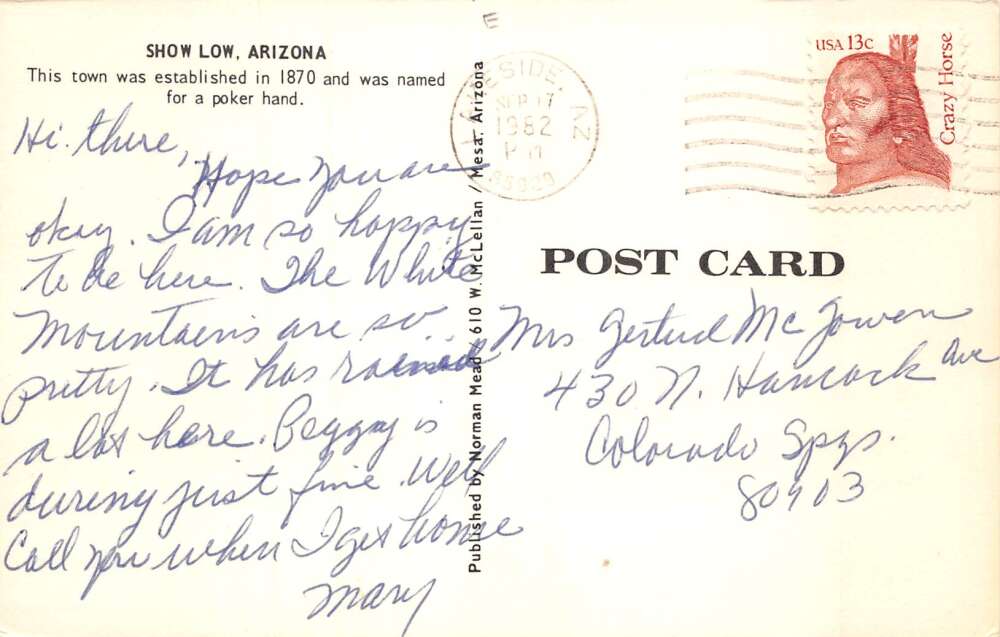 SHOW LOW, ARIZONA
This town was established in 1870 and was named
for a poker hand.
Hi there,
Hope you are
okay. I am so happy
to be here. The White
Mountains are so
pretty. It has rained
a lot here. Peggy is
during just fine. Well
Call you when I get home
Mary
Published by Norman Mead / 610 W. McLellan / Mesa, Arizona
E
LAKESIDE, AZ
SEP 17
1982
PM
85929
USA 13c
Crazy Horse
POST CARD
Mrs Gertrud McGowen
430 N. Hancock Ave
Colorado Spgs.
80903